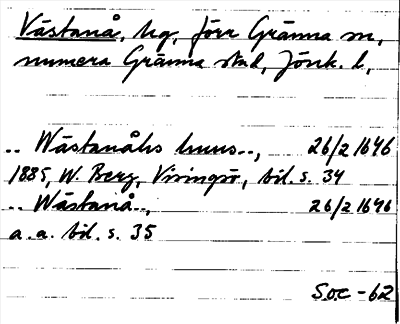 Västanå, hg, förr Gränna sn,
numera Gränna stad, Jönk. l,
.. Wästanåhs huus..,   26/2 1646
1885, W. Berg, Visingsö, bil. s. 34
.. Wästanå..,   26/2 1646
a. a. bil. s. 35
Soc - 62